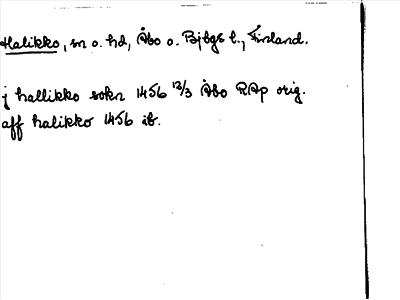 Halikko, sn o. hd, Åbo o. Bjbgs l., Finland.
j hallikko sokn 1456 12/3 Åbo RAp orig.
aff halikko 1456 ib.